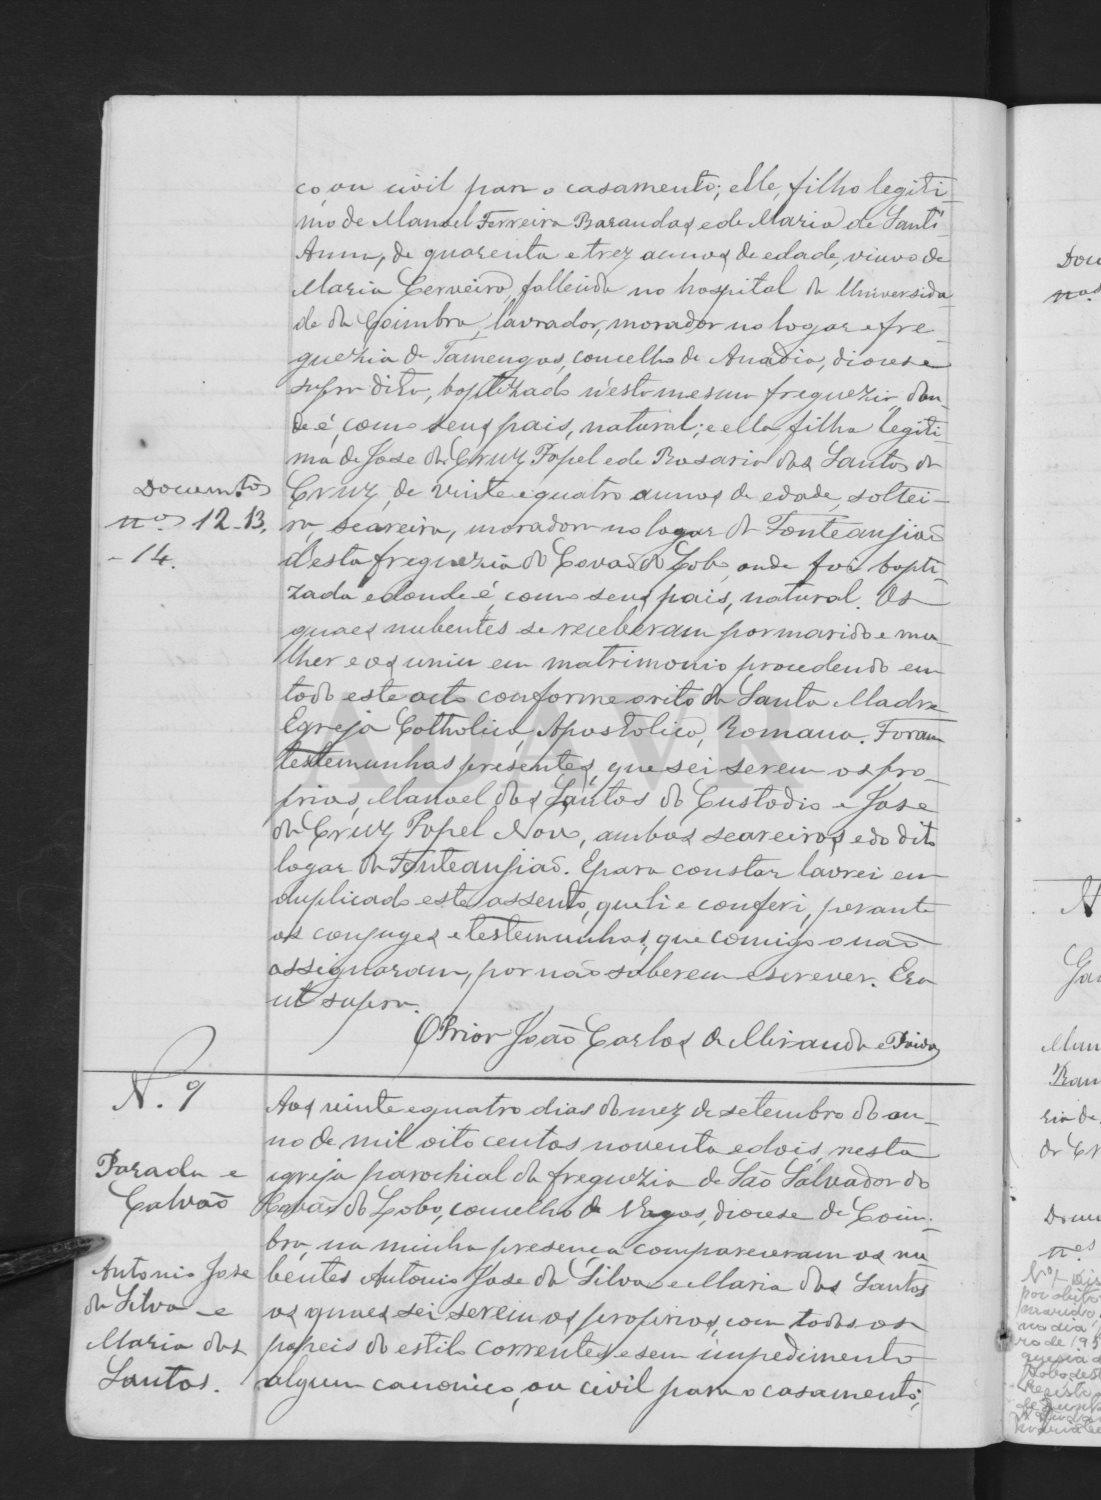 co, ou civil para o casamento; elle, filho legiti-
mo de Manoel Ferreira Barandas e de Maria de Sant'
Anna, de quarenta e trez annos de edade, viuvo de
Maria Cerveira, fallecida no hospital da Universida-
de de Coimbra, lavrador, morador no logar e fre-
guezia de Tamengos, concelho de Anadia, diocese
supra dita, baptizado n'esta mesma freguezia, don-
de é, como seus pais, natural; e ella, filha legiti-
ma de Jose da Cruz Papel e de Rosaria dos Santos da
Cruz, de vinte e quatro annos de edade, soltei-
ra, seareira, moradora no logar de Fonteangião
d'esta freguezia do Covão do Lobo, onde foi bapti-
zada e donde é, como seus pais, natural. Os
quaes nubentes se receberam por marido e mu-
lher e os uniu em matrimonio, procedendo em
todo este acto conforme o rito da Santa Madre
Egreja Catholica, Apostolica, Romana. Foram
testemunhas presentes, que sei serem os pro-
prios, Manoel dos Santos do Custodio e Jose
da Cruz Papel Novo, ambos seareiros e do dito
logar de Fonteangião. E para constar lavrei em
duplicado este assento, que li e conferi, perante
os conjuges e testemunhas, que comigo o não
assignaram, por não saberem escrever. Era
ut supra.
O Prior João Carlos de Miranda e Paiva
Docum.tos
n.os 12-13.
-14.
N. 9
Parada e
Calvão
Antonio Jose
da Silva e
Maria dos
Santos.
Aos vinte e quatro dias do mez de setembro do an-
no de mil oito centos noventa e dois, nesta
igreja parochial da freguezia de São Salvador do
Covão do Lobo, concelho de Vagos, diocese de Coim-
bra, na minha presença compareceram os nu-
bentes Antonio Jose da Silva e Maria dos Santos
os quaes sei serem os proprios, com todos os
papeis do estilo correntes e sem impedimento
algum canonico, ou civil para o casamento;
ADAVR